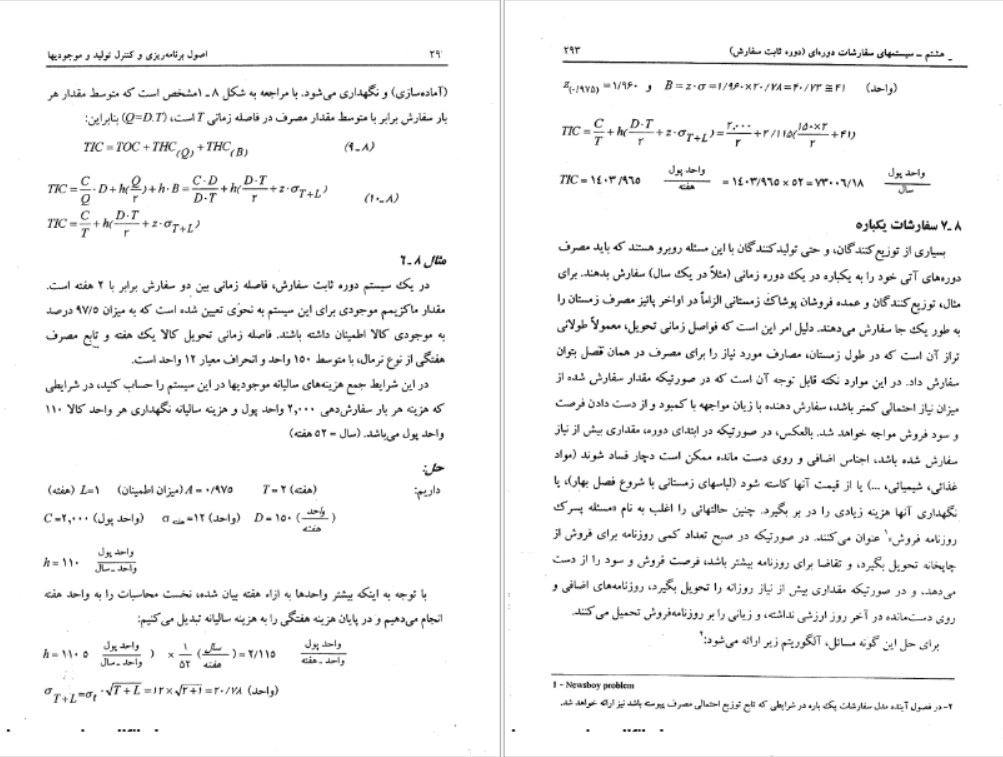 ۲۹ اصول برنامه‌ریزی و کنترل تولید و موجودیها
(آماده‌سازی) و نگهداری می‌شود. با مراجعه به شکل ۸ـ۱مشخص است که متوسط مقدار هر
بار سفارش برابر با متوسط مقدار مصرف در فاصله زمانی T است، (Q=D.T) بنابراین:
TIC = TOC + THC(Q) + THC(B) (۸ـ۹)
TIC = C/Q · D + h(Q/۲) + h · B = C·D/D·T + h(D·T/۲ + z·σT+L) (۸ـ۱۰)
TIC = C/T + h(D·T/۲ + z·σT+L)
مثال ۸ـ۶
در یک سیستم دوره ثابت سفارش، فاصله زمانی بین دو سفارش برابر با ۲ هفته است.
مقدار ماکزیمم موجودی برای این سیستم به نحوی تعیین شده است که به میزان ۹۷/۵ درصد
به موجودی کالا اطمینان داشته باشند. فاصله زمانی تحویل کالا یک هفته و تابع مصرف
هفتگی از نوع نرمال، با متوسط ۱۵۰ واحد و انحراف معیار ۱۲ واحد است.
در این شرایط جمع هزینه‌های سالیانه موجودیها در این سیستم را حساب کنید، در شرایطی
که هزینه هر بار سفارش‌دهی ۲,۰۰۰ واحد پول و هزینه سالیانه نگهداری هر واحد کالا ۱۱۰
واحد پول می‌باشد. (سال = ۵۲ هفته)
حل:
داریم: (هفته) T = ۲ (میزان اطمینان) A = ۰/۹۷۵ (هفته) L=۱
C = ۲,۰۰۰ (واحد پول) σهفته = ۱۲ (واحد) D = ۱۵۰ (واحد/هفته)
h = ۱۱۰ واحد پول/واحد ـ سال
با توجه به اینکه بیشتر واحدها به ازاء هفته بیان شده، نخست محاسبات را به واحد هفته
انجام می‌دهیم و در پایان هزینه هفتگی را به هزینه سالیانه تبدیل می‌کنیم:
h = ۱۱۰ ۵ واحد پول/واحد ـ سال ) × ۱/۵۲ (سال/هفته) = ۲/۱۱۵ واحد پول/واحد ـ هفته
σT+L = σt · √T+L = ۱۲ × √۲+۱ = ۲۰/۷۸ (واحد)
هشتم ـ سیستمهای سفارشات دوره‌ای (دوره ثابت سفارش) ۲۹۳
z(۰/۹۷۵) = ۱/۹۶۰ و B = z·σ = ۱/۹۶۰ × ۲۰/۷۸ = ۴۰/۷۳ ≅ ۴۱ (واحد)
TIC = C/T + h(D·T/۲ + z·σT+L) = ۲,۰۰۰/۲ + ۲/۱۱۵(۱۵۰×۲/۲ + ۴۱)
TIC = ۱۴۰۳/۹۶۵ واحد پول/هفته = ۱۴۰۳/۹۶۵ × ۵۲ = ۷۳۰۰۶/۱۸ واحد پول/سال
۸ـ۷ سفارشات یکباره
بسیاری از توزیع‌کنندگان، و حتی تولیدکنندگان با این مسئله روبرو هستند که باید مصرف
دوره‌های آتی خود را به یکباره در یک دوره زمانی (مثلاً در یک سال) سفارش بدهند. برای
مثال، توزیع‌کنندگان و عمده فروشان پوشاک زمستانی الزاماً در اواخر پائیز مصرف زمستان را
به طور یک جا سفارش می‌دهند. دلیل امر این است که فواصل زمانی تحویل، معمولاً طولانی
تراز آن است که در طول زمستان، مصارف مورد نیاز را برای مصرف در همان فصل بتوان
سفارش داد. در این موارد نکته قابل توجه آن است که در صورتیکه مقدار سفارش شده از
میزان نیاز احتمالی کمتر باشد، سفارش دهنده با زیان مواجهه با کمبود و از دست دادن فرصت
و سود فروش مواجه خواهد شد. بالعکس، در صورتیکه در ابتدای دوره، مقداری بیش از نیاز
سفارش شده باشد، اجناس اضافی و روی دست مانده ممکن است دچار فساد شوند (مواد
غذائی، شیمیائی، ...) یا از قیمت آنها کاسته شود (لباسهای زمستانی با شروع فصل بهار)، یا
نگهداری آنها هزینه زیادی را در بر بگیرد. چنین حالتهائی را اغلب به نام «مسئله پسرک
روزنامه فروش»۱ عنوان می‌کنند. در صورتیکه در صبح تعداد کمی روزنامه برای فروش از
چاپخانه تحویل بگیرد، و تقاضا برای روزنامه بیشتر باشد، فرصت فروش و سود را از دست
می‌دهد، و در صورتیکه مقداری بیش از نیاز روزانه را تحویل بگیرد، روزنامه‌های اضافی و
روی دست‌مانده در آخر روز ارزشی نداشته، و زیانی را بر روزنامه‌فروش تحمیل می‌کنند.
برای حل این گونه مسائل، آلگوریتم زیر ارائه می‌شود:۲
1 - Newsboy problem
۲- در فصول آینده مدل سفارشات یک باره در شرایطی که تابع توزیع احتمالی مصرف پیوسته باشد نیز ارائه خواهد شد.